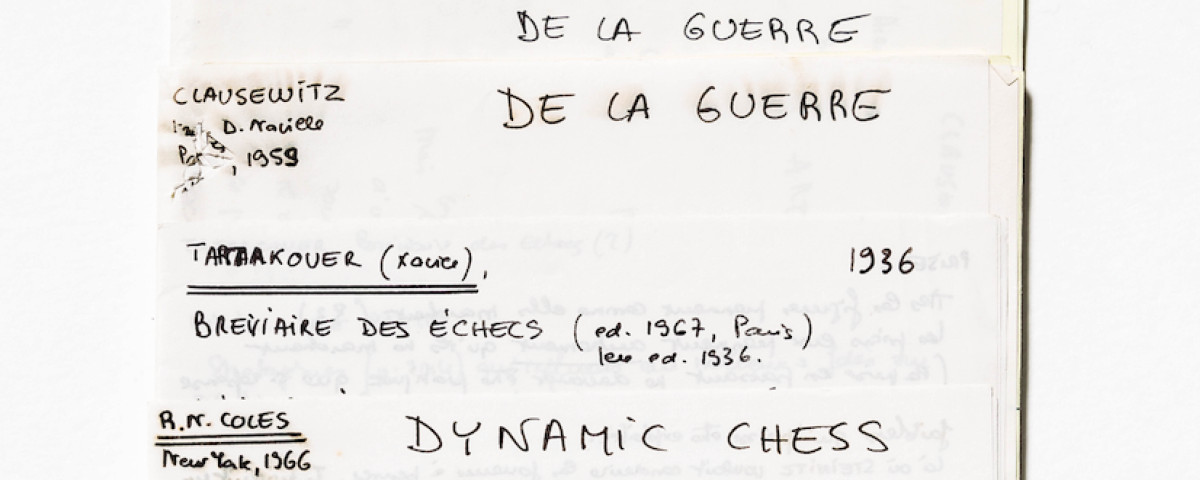 DE LA GUERRE
CLAUSEWITZ
DE LA GUERRE
D. Naville
, 1959
TARTAKOUER (Xavier),
1936
BRÉVIAIRE DES ÉCHECS (ed. 1967, Paris)
1ere ed. 1936.
R.N. COLES
DYNAMIC CHESS
New York, 1966